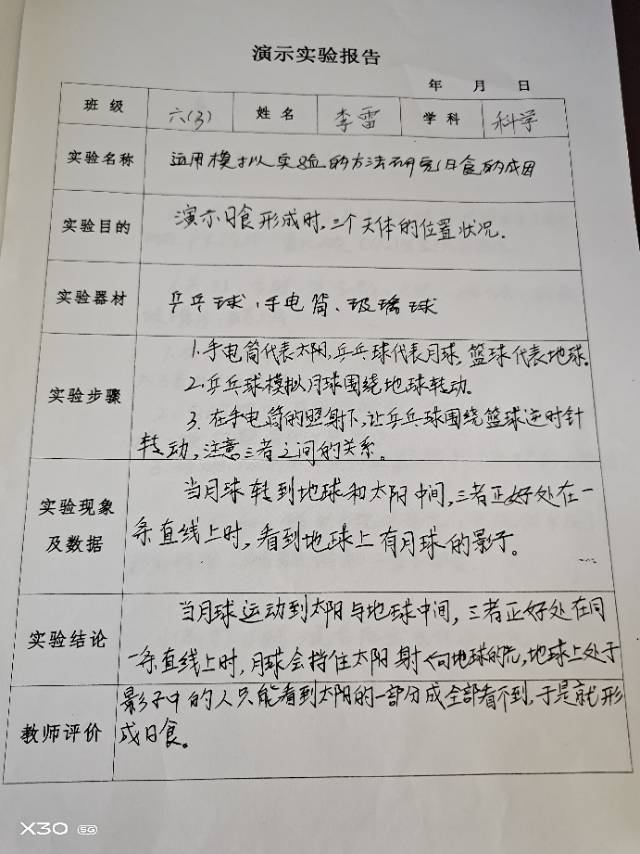 演示实验报告
年 月 日
班级 六(3) 姓名 李雷 学科 科学
实验名称 运用模拟实验的方法研究日食的成因
实验目的 演示日食形成时,三个天体的位置状况.
实验器材 乒乓球、手电筒、玻璃球
1.手电筒代表太阳,乒乓球代表月球,篮球代表地球.
实验步骤 2.乒乓球模拟月球围绕地球转动.
3.在手电筒的照射下,让乒乓球围绕篮球逆时针
转动,注意三者之间的关系。
实验现象及数据 当月球转到地球和太阳中间,三者正好处在一
条直线上时,看到地球上有月球的影子。
当月球运动到太阳与地球中间,三者正好处在同
实验结论 一条直线上时,月球会挡住太阳射向地球的光,地球上处于
影子中的人只能看到太阳的一部分或全部看不到,于是就形
教师评价 成日食。
X30 5G